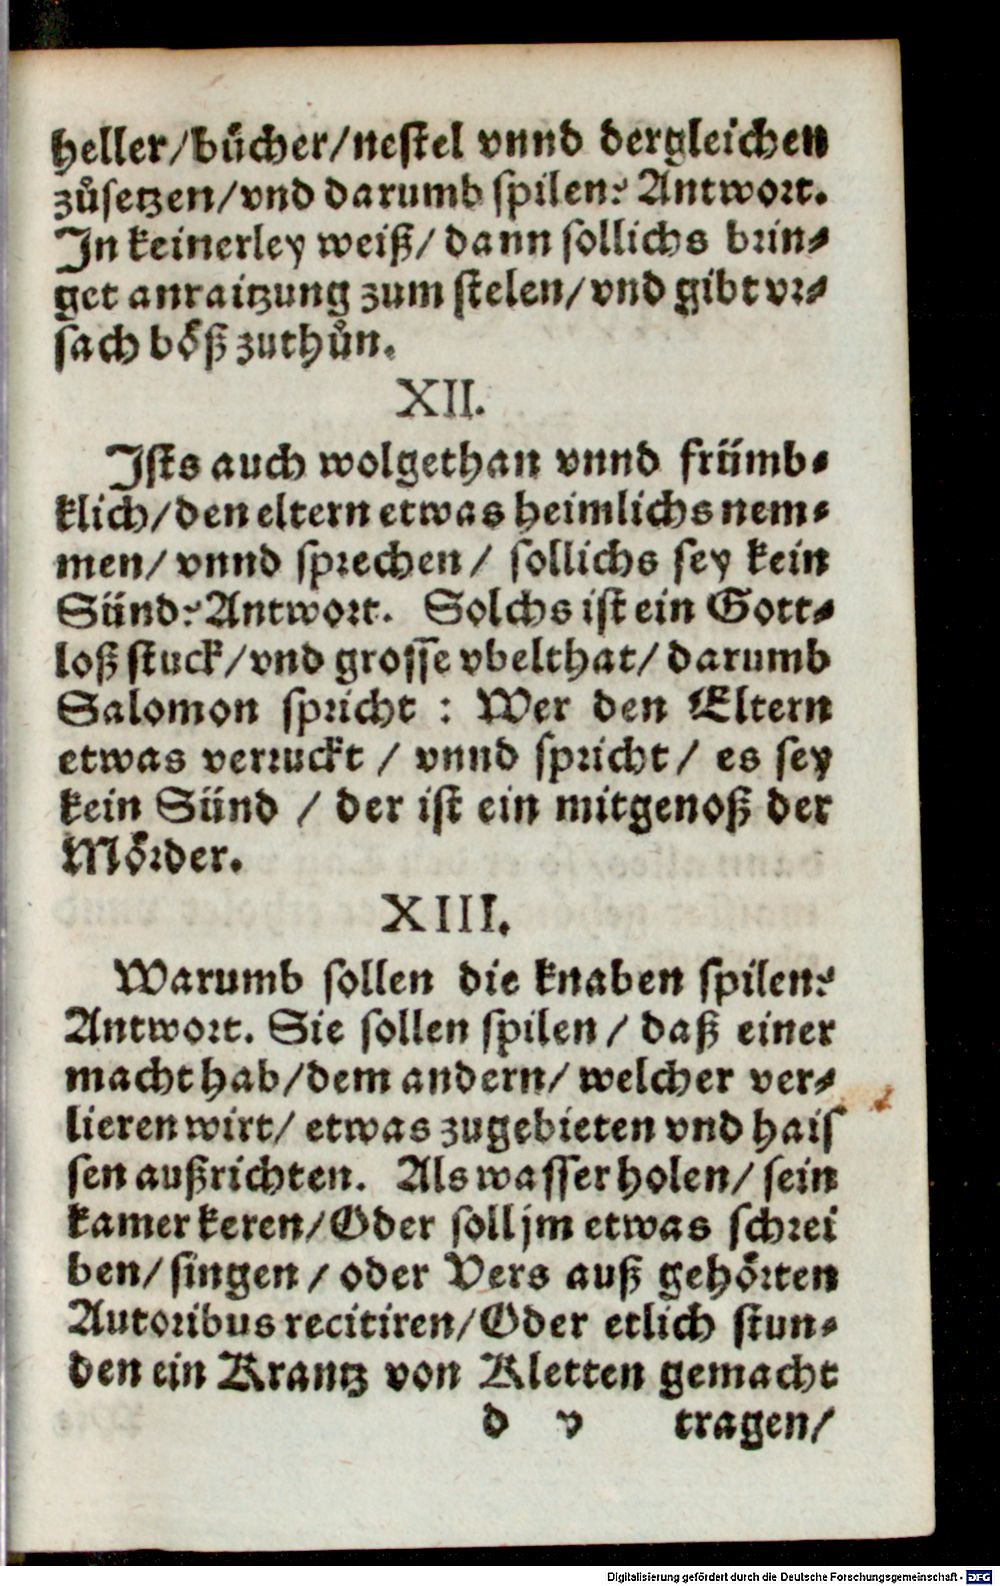 heller/bücher/nestel vnnd dergleichen
zůsetzen/vnd darumb spilen? Antwort.
In keinerley weiß/ dann sollichs brin⸗
get anraitzung zum stelen/vnd gibt vr⸗
sach böß zuthůn.
XII.
Ists auch wolgethan vnnd frümb⸗
klich/den eltern etwas heimlichs nem⸗
men/ vnnd sprechen/ sollichs sey kein
Sünd? Antwort. Solchs ist ein Gott⸗
loß stuck/vnd grosse vbelthat/ darumb
Salomon spricht : Wer den Eltern
etwas verruckt / vnnd spricht/ es sey
kein Sünd / der ist ein mitgenoß der
Mörder.
XIII.
Warumb sollen die knaben spilen?
Antwort. Sie sollen spilen/ daß einer
macht hab/dem andern/ welcher ver⸗
lieren wirt/ etwas zugebieten vnd hais
sen außrichten. Als wasser holen/ sein
kamer keren/Oder soll jm etwas schrei
ben/ singen / oder Vers auß gehörten
Autoribus recitiren/Oder etlich stun⸗
den ein Krantz von Kletten gemacht
d v tragen/
Digitalisierung gefördert durch die Deutsche Forschungsgemeinschaft - DFG